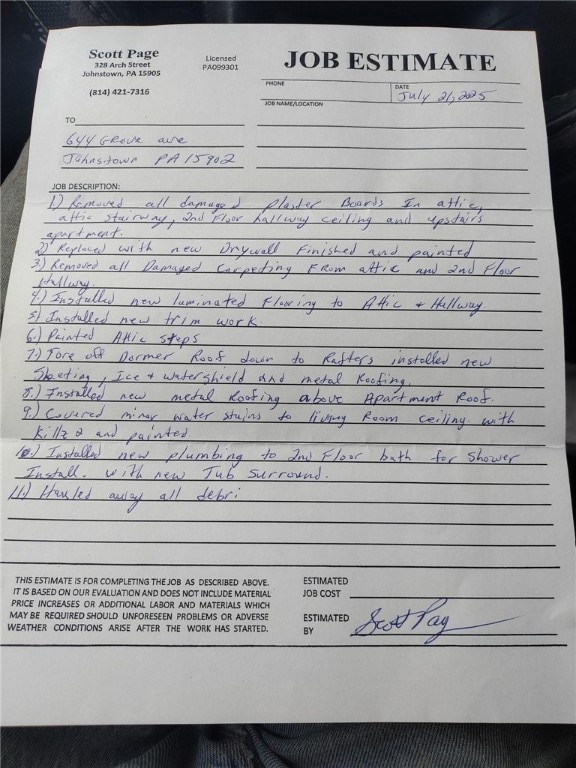 Scott Page
328 Arch Street
Johnstown, PA 15905
(814) 421-7316
Licensed
PA099301
JOB ESTIMATE
PHONE
DATE
July 21, 2025
JOB NAME/LOCATION
TO
644 Grove ave
Johnstown PA 15902
JOB DESCRIPTION:
1.) Removed all damaged plaster Boards In attic,
attic stairway, 2nd Floor hallway ceiling and upstairs
apartment.
2) Replaced with new Drywall Finished and painted
3.) Removed all Damaged Carpeting From attic and 2nd Floor
Hallway.
4.) Installed new laminated Flooring to Attic + Hallway
5.) Installed new trim work.
6.) Painted Attic steps
7.) Tore off Dormer Roof down to Rafters installed new
Sheeting, Ice + watershield and metal Roofing.
8.) Installed new metal Roofing above Apartment Roof.
9.) Covered minor water stains to living Room ceiling with
Killz 2 and painted
10.) Installed new plumbing to 2nd Floor bath for Shower
Install. with new Tub surround.
11.) Hauled away all debri
THIS ESTIMATE IS FOR COMPLETING THE JOB AS DESCRIBED ABOVE.
IT IS BASED ON OUR EVALUATION AND DOES NOT INCLUDE MATERIAL
PRICE INCREASES OR ADDITIONAL LABOR AND MATERIALS WHICH
MAY BE REQUIRED SHOULD UNFORESEEN PROBLEMS OR ADVERSE
WEATHER CONDITIONS ARISE AFTER THE WORK HAS STARTED.
ESTIMATED
JOB COST
ESTIMATED
BY
Scott Pag